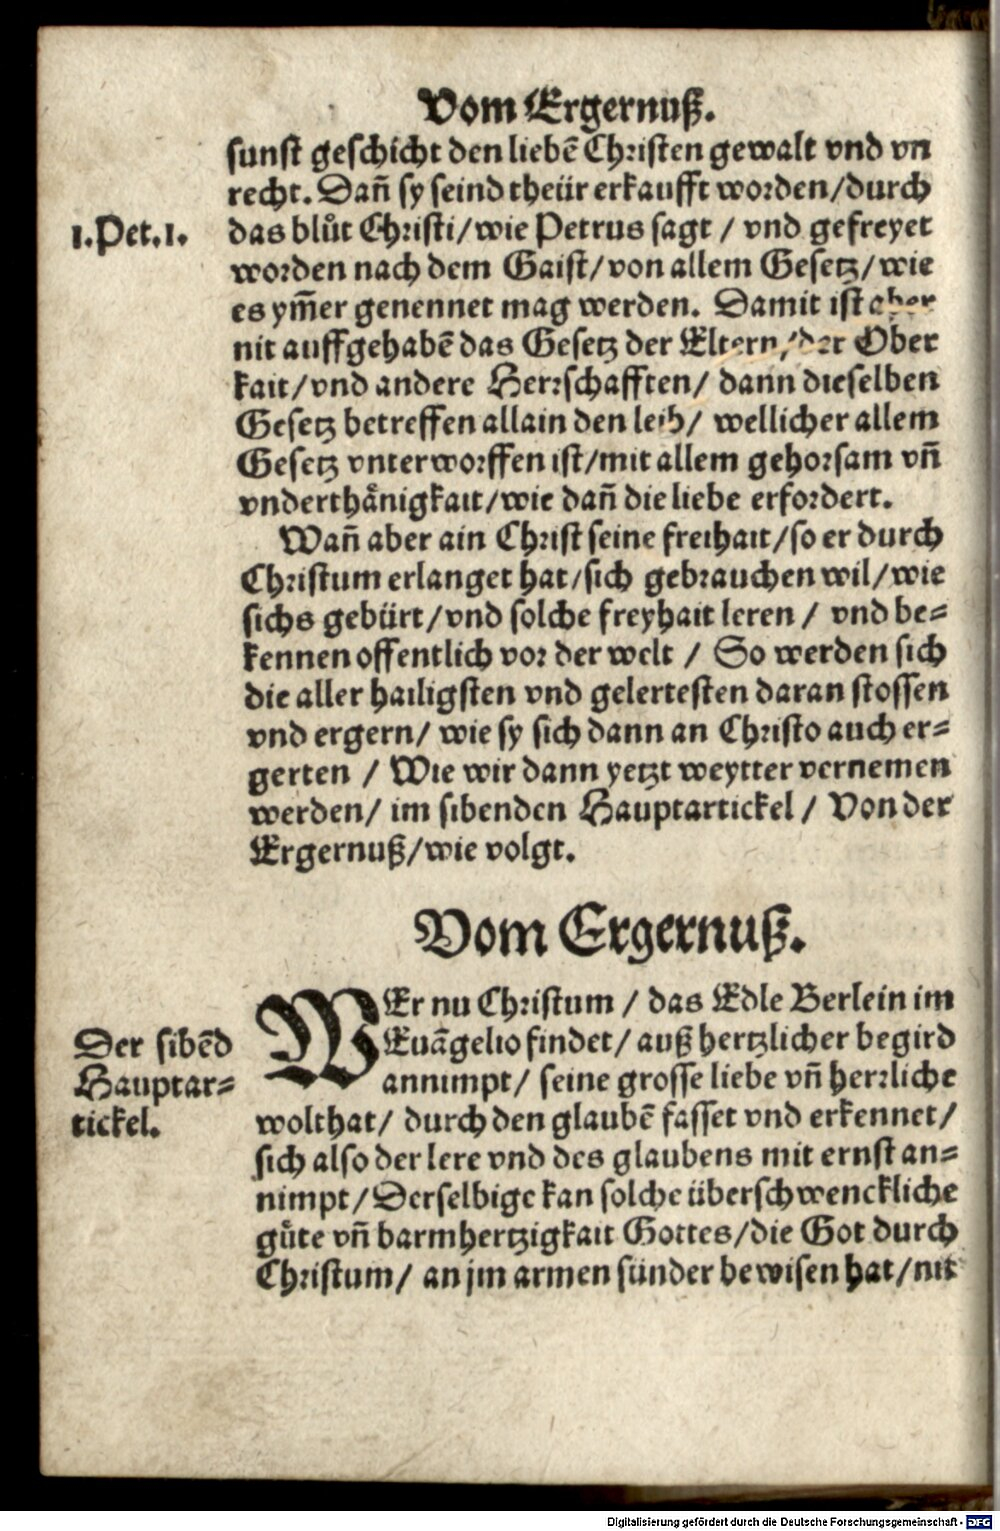 Vom Ergernuß.
sunst geschicht den liebē Christen gewalt vnd vn
recht. Dañ sy seind theür erkaufft worden/durch
1.Pet.1.
das blůt Christi/wie Petrus sagt / vnd gefreyet
worden nach dem Gaist/von allem Gesetz/wie
es ym̃er genennet mag werden. Damit ist aber
nit auffgehabē das Gesetz der Eltern/der Ober
kait/vnd andere Herrschafften/ dann dieselben
Gesetz betreffen allain den leib/ wellicher allem
Gesetz vnterworffen ist/mit allem gehorsam vñ
vnderthånigkait/wie dañ die liebe erfordert.
Wañ aber ain Christ seine freihait/so er durch
Christum erlanget hat/sich gebrauchen wil/wie
sichs gebürt/vnd solche freyhait leren / vnd be-
kennen offentlich vor der welt / So werden sich
die aller hailigsten vnd gelertesten daran stossen
vnd ergern/ wie sy sich dann an Christo auch er-
gerten / Wie wir dann yetzt weytter vernemen
werden/ im sibenden Hauptartickel / Von der
Ergernuß/wie volgt.
Vom Ergernuß.
WEr nu Christum / das Edle Berlein im
Euāgelio findet/ auß hertzlicher begird
annimpt/ seine grosse liebe vñ herrliche
Der sibēd
Hauptar-
tickel.
wolthat/ durch den glaubē fasset vnd erkennet/
sich also der lere vnd des glaubens mit ernst an-
nimpt/Derselbige kan solche überschwenckliche
gůte vñ barmhertzigkait Gottes/die Got durch
Christum/ an jm armen sünder bewisen hat/nit
Digitalisierung gefördert durch die Deutsche Forschungsgemeinschaft - DFG